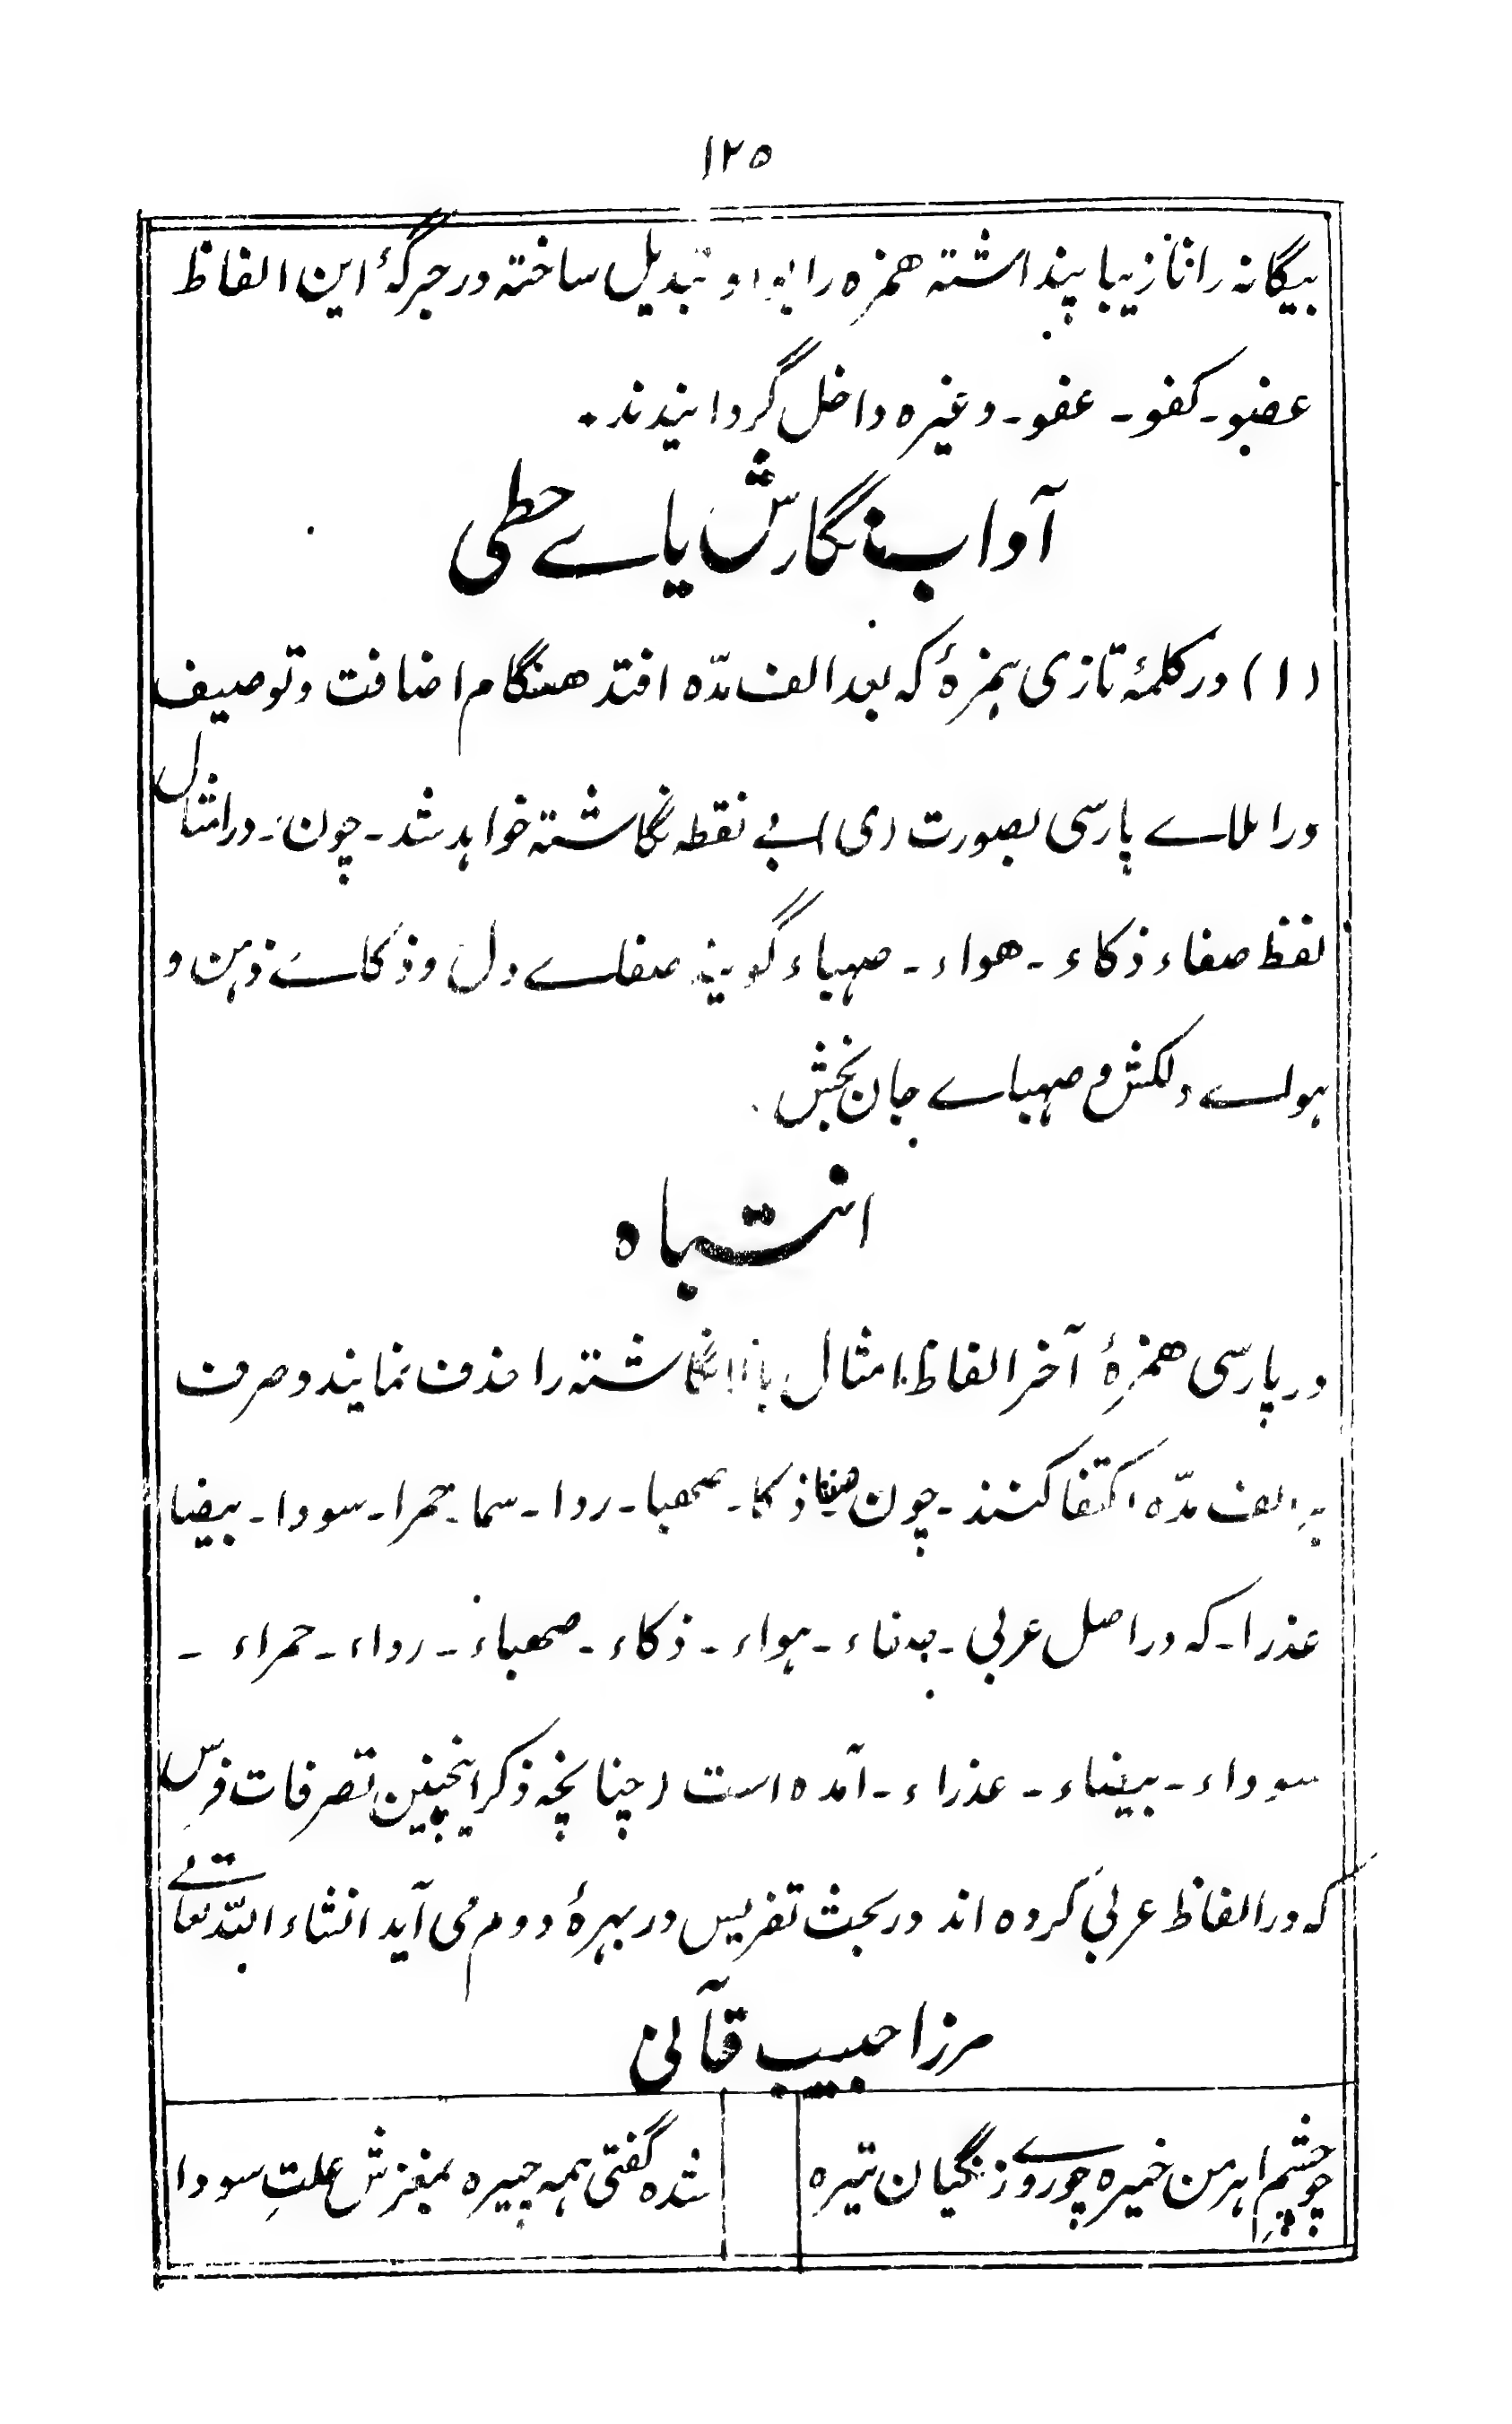 ۱۲۵
بیگانه را نازیبا پنداشته همزه را بواو تبدیل ساخته در جرگۂ این الفاظ
عضو۔ کفو۔ عفو۔ وغیره داخل گردانیدند۔
آداب نگارش یاے حطی
(۱) در کلمۂ تازی ہمزۂ که بعد الف مدّه افتد هنگام اضافت و توصیف
در املاے پارسی بصورت (ی) بے نقطه نگاشته خواہد شد۔ چون۔ در امثال
لفظ صفاء ذکاء۔ هواء۔ صہباء گویند صفاے دل و ذکاے ذہن و
ہواے دلکش و صہباے جان بخش۔
انتباه
در پارسی همزۂ آخر الفاظ امثال نگاشته را حذف نمایند و صرف
به الف مدّه اکتفا کنند۔ چون صفا ذکا۔ صحبا۔ ردا۔ سما۔ حمرا۔ سودا۔ بیضا
عذرا۔ که در اصل عربی۔ ہواء۔ ذکاء۔ صحباء۔ رداء۔ حمراء۔
سوداء۔ بیضاء۔ عذراء۔ آمده است (چنانچه ذکر اینچنین تصرفات فرس
که در الفاظ عربی کرده اند در بحث تفریس در بہرۂ دوم می آید انشاء اللّه تعالے
مرزا حبیب قاآنی
چو چشمِ اہرمن خیره چو روے زنگیان تیره شده گفتی ہمه چیره بمغزش علتِ سودا